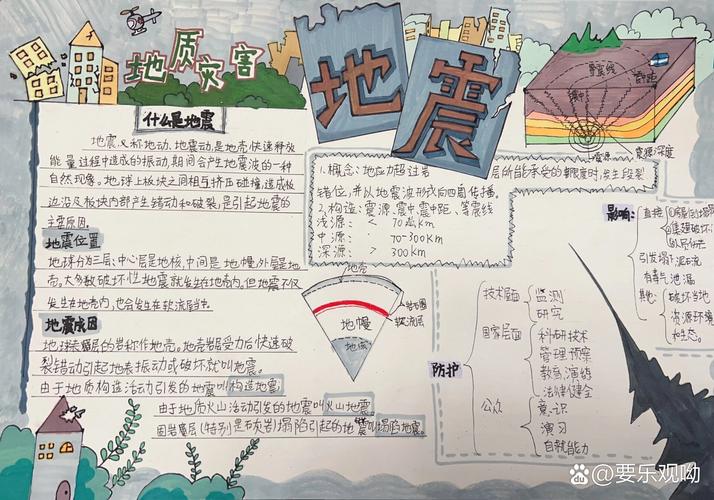 地质灾害
地震
什么是地震
地震又称地动、地震动,是地壳快速释放
能量过程中造成的振动,期间会产生地震波的一种
自然现象。地球上板块之间相互挤压碰撞,造成板
边沿及板块内部产生错动和破裂,是引起地震的
主要原因。
地震位置
地球分为三层:中心层是地核,中间是地幔,外层是地
壳。大多数破坏性地震就发生在地壳内。但地震不仅
发生在地壳内,也会发生在软流层当中。
地震成因
地球表层的岩称作地壳。地壳岩层受力后快速破
裂错动引起地表振动或破坏就叫地震。
由于地质构造活动引发的地震叫构造地震,
由于地质火山活动引发的地震叫火山地震,
固岩层(特别是石灰岩)塌陷引起的地震叫塌陷地震。
1.概念:地应力超过岩层所能承受的限度时,发生段裂
错位,并以地震波形式向四周传播。
2.构造:震源、震中、震中距、等震线
浅源: < 70km
中源: 70-300km
深源: > 300km
等震线
震中
震源
震源深度
地壳
岩石圈
软流层
地幔
地核
防护
技术层面
监测
研究
国家层面
科研技术
管理预案
教育演练
法律健全
公众
意识
演习
自救能力
影响:
直接
引发塌下泥石流
有毒气泄漏
其他:
破坏当地
资源环境
和生态。
@要乐观呦